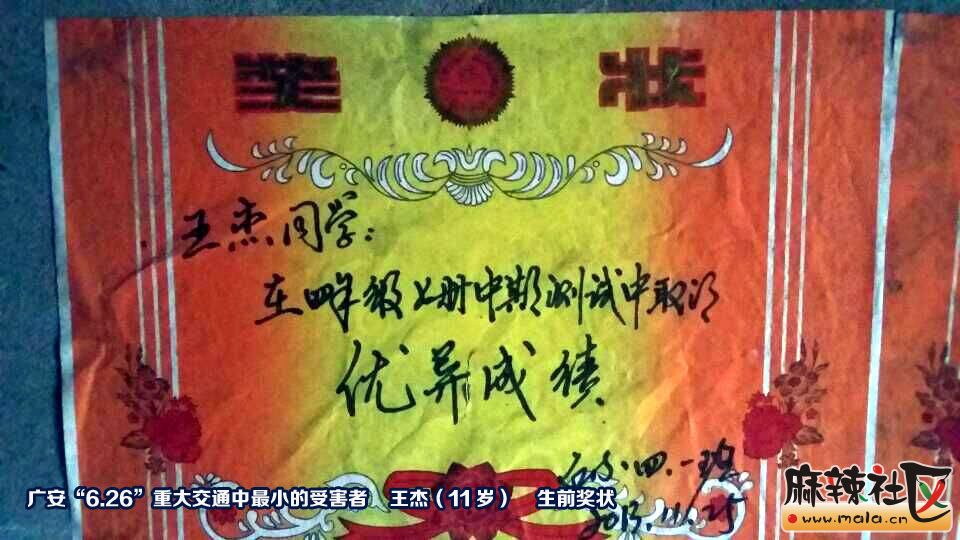 奖状
王杰同学：
在四年级上册中期测试中取得
优异成绩
四.一班
2013.11.25
广安“6.26”重大交通中最小的受害者 王杰（11岁） 生前奖状
麻辣社区
www.mala.cn